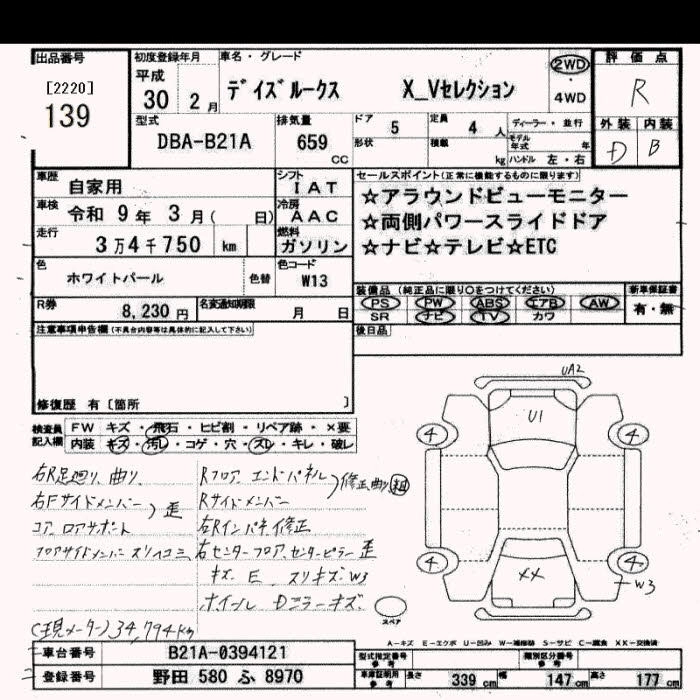 出品番号
[2220]
139
初度登録年月
平成
30 2 月
車名・グレード
デイズルークス X_Vセレクション
2WD
・
4WD
評価点
R
外装 内装
D B
型式
DBA-B21A
排気量
659
cc
ドア
5
定員
4 人
形状
積載
kg
ディーラー・並行
モデル年式 年
ハンドル 左・右
車歴
自家用
シフト
IAT
車検
令和 9年 3月( 日)
冷房
AAC
走行
3万4千750 km
燃料
ガソリン
色
ホワイトパール
色替
色コード
W13
R券
8,230 円
名変通知期限
月 日
セールスポイント(正常に機能するものに限ります)
☆アラウンドビューモニター
☆両側パワースライドドア
☆ナビ☆テレビ☆ETC
装備品 (純正品に限り○をつけてください)
PS PW ABS エアB AW
SR ナビ TV カワ
新車保証書
有・無
後日品
注意事項申告欄 (不具合内容等は具体的に記入して下さい)
修復歴 有〔箇所 〕
検査員
記入欄
FW キズ・飛石・ヒビ割・リペア跡・×要
内装 キズ・汚レ・コゲ・穴・スレ・キレ・破レ
右R足廻り、曲り、
右Fサイドメンバー
コア、ロアサポート
)歪
フロアサイドメンバー スリ凹ミ
Rフロア エンドパネル
Rサイドメンバー
)修正曲り
右Rインパネ修正
右センターフロア、センターピラー歪
キズ、E、スリキズ、W3
ホイール Dミラーキズ
(現メーター)34,794km
UA2
U1
4
4
4
4
XX
W3
スペア
A-キズ E-エクボ U-凹み W-補修跡 S-サビ C-腐食 XX-交換済
車台番号
B21A-0394121
登録番号
野田 580 ふ 8970
型式指定番号
参考
類別区分番号
参考
車庫証明用
参考
長さ 339 cm
幅 147 cm
高さ 177 cm